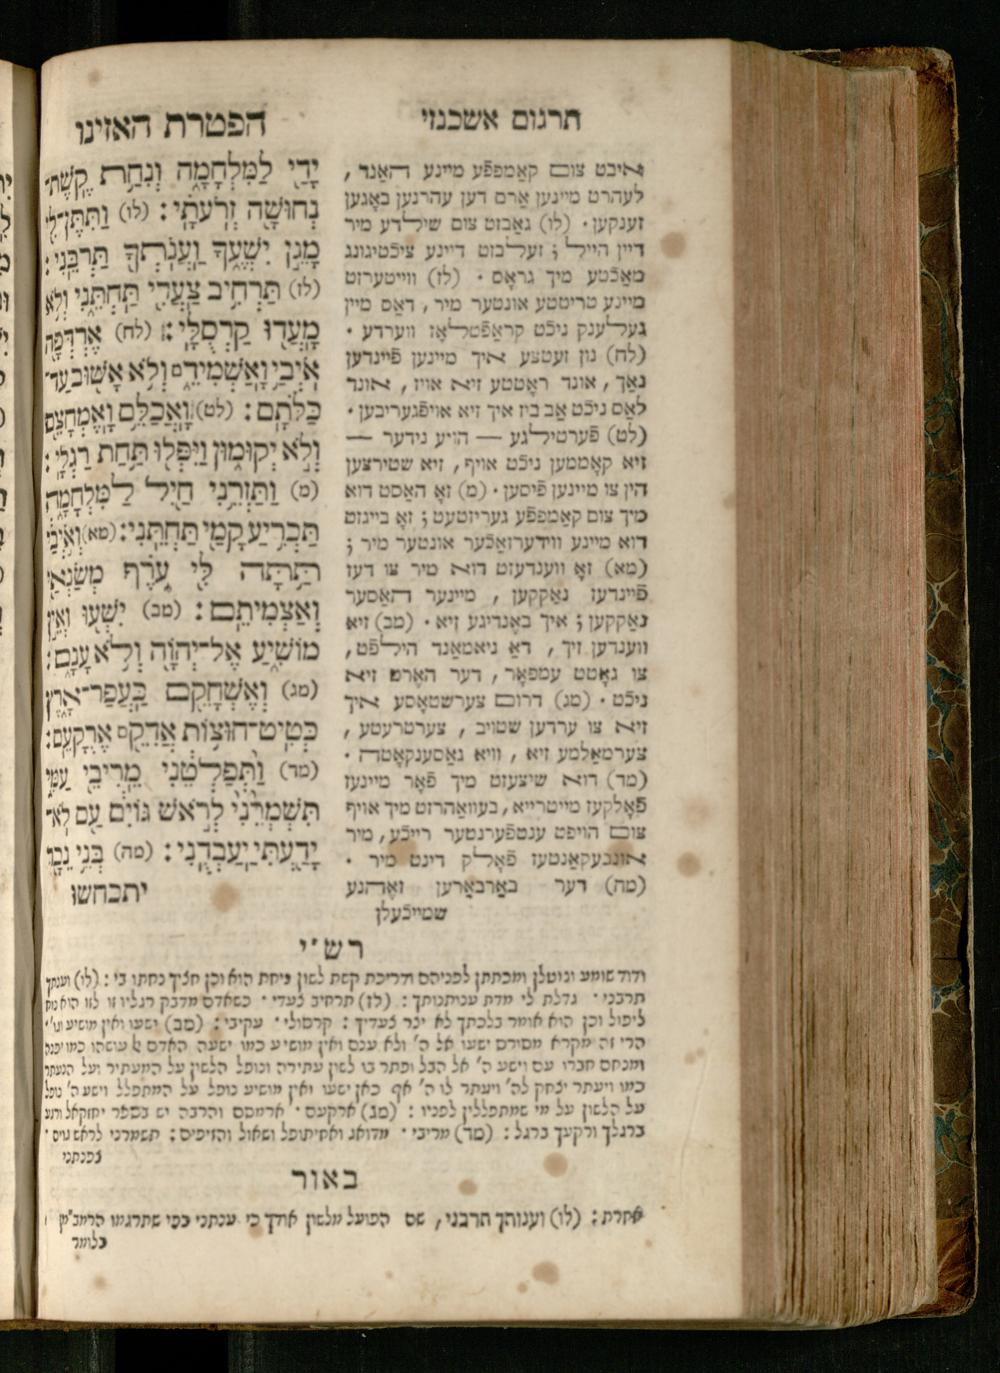 תרגום אשכנזי
איבט צום קאַמפפֿע מיינע האַנד,
לעהרט מיינען אַרם דען עהרנען באָגען
זענקען· (לו) גאַבזט צום שילדע מיר
דיין הייל; זעלבזט דיינע ציכֿטיגונג
מאַכֿטע מיך גראָס· (לז) ווייטערזט
מיינע טריטטע אונטער מיר, דאַס מיין
געלענק ניכֿט קראַפֿטלאָז ווערדע·
(לח) נון זעטצע איך מיינען פֿיינדען
נאַך, אונד ראָטטע זיא אויז, אונד
לאַס ניכֿט אַב ביז איך זיא אויפֿגעריבען·
(לט) פֿערטילגע — היע נידער —
זיא קאָממען ניכֿט אויף, זיא שטירצען
הין צו מיינען פֿיסען· (מ) זאָ האַסט דוא
מיך צום קאַמפפֿע געריזטעט; זאָ בייגזט
דוא מיינע ווידערזאַכֿער אונטער מיר;
(מא) זאָ ווענדעזט דוא מיר צו דעז
פֿיינדעז נאַקקען, מיינער האַסער
נאַקקען; איך באֶנדיגע זיא· (מב) זיא
ווענדען זיך, דאַ ניאמאַנד הילפֿט,
צו גאָטט עמפּאָר, דער האָרט זיא
ניכֿט· (מג) דרום צערשטאָסע איך
זיא צו ערדען שטויב, צערטרעטע,
צערמאַלמע זיא, וויא גאַסענקאָטה·
(מד) דוא שיצעזט מיך פֿאָר מיינעז
פֿאָלקעז מייטרייא, בעוואַהרזט מיך אויף
צום הויפט ענטפֿערנטער רייכֿע, מיר
אונבעקאַנטעז פֿאָלק דינט מיר·
(מה) דער באַרבאַרען זאֶהנע
שמייכֿעלן
הפטרת האזינו
יָדַי לַמִּלְחָמָה וְנִחַת קֶשֶׁת־
נְחוּשָׁה זְרֹעֹתָי: (לו) וַתִּתֶּן־לִי
מָגֵן יִשְׁעֶךָ וַעֲנֹתְךָ תַּרְבֵּנִי:
(לז) תַּרְחִיב צַעֲדִי תַּחְתֵּנִי וְלֹא
מָעֲדוּ קַרְסֻלָּי: (לח) אֶרְדְּפָה
אֹיְבַי וָאַשְׁמִידֵם וְלֹא אָשׁוּב עַד־
כַּלּוֹתָם: (לט) וָאֲכַלֵּם וָאֶמְחָצֵם
וְלֹא יְקוּמוּן וַיִּפְּלוּ תַּחַת רַגְלָי:
(מ) וַתַּזְרֵנִי חַיִל לַמִּלְחָמָה
תַּכְרִיעַ קָמַי תַּחְתֵּנִי: (מא) וְאֹיְבַי
תַּתָּה לִּי עֹרֶף מְשַׂנְאַי
וָאַצְמִיתֵם: (מב) יִשְׁעוּ וְאֵין
מוֹשִׁיעַ אֶל־יְהוָֹה וְלֹא עָנָם:
(מג) וְאֶשְׁחָקֵם כַּעֲפַר־אָרֶץ
כְּטִיט־חוּצוֹת אֲדִקֵּם אֶרְקָעֵם:
(מד) וַתְּפַלְּטֵנִי מֵרִיבֵי עַמִּי
תִּשְׁמְרֵנִי לְרֹאשׁ גּוֹיִם עַם לֹא־
יָדַעְתִּי יַעַבְדֻנִי: (מה) בְּנֵי נֵכָר
יתכחשו
רש״י
ודוד שומע ונוטלן ומכתתן לפניהם ודריכת קשת לשון ניחת הוא וכן חציך נחתו בי: (לו) וענתך
תרבני· גדלת לי מדת ענותנותך: (לז) תרחיב צעדי· כשאדם מדבק רגליו זו לזו הוא נוח
ליפול וכן הוא אומר בלכתך לא יצר צעדיך: קרסולי· עקיבי: (מב) ישעו ואין מושיע וגו׳·
הרי זה מקרא מסורס ישעו אל ה׳ ולא ענם ואין מושיע כמו ישעה האדם על עושהו כמו יפנה
ומנחם חברו עם וישע ה׳ אל הבל ופתר בו לשון עתירה ונופל הלשון על המעתיר ועל הנעתר
כמו ויעתר יצחק לה׳ ויעתר לו ה׳ אף כאן ישעו ואין מושיע נופל על המתפלל וישע ה׳ נופל
על הלשון על מי שמתפללין לפניו: (מג) ארקעם· ארמסם והרבה יש בספר יחזקאל ורקע
ברגלך ורקעך ברגל: (מד) מריבי· מדואג ואחיתופל ושאול והזיפים: תשמרני לראש גוים·
צפנתני
באור
אחרת: (לו) וענותך תרבני, שם הפועל מלשון אודך כי עניתני כפי שתרגמו הרמב״מן
כלומר